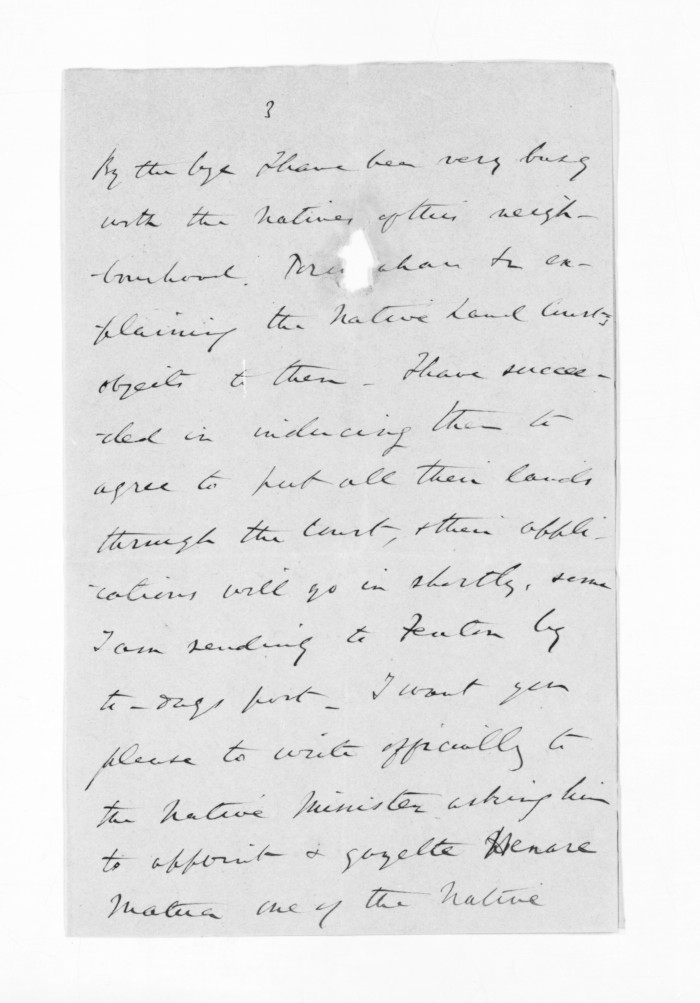 3
By the bye I have been very busy
with the Natives of this neigh-
-bourhood. & ex-
-plaining the Native Land Courts
objects to them - I have succee-
-ded in inducing them to
agree to put all their lands
through the Court, & their appli-
-cations will go in shortly, some
I am sending to Fenton by
to-days post - I want you
please to write officially to
the Native Minister asking him
to appoint & gazette Henare
Matua one of the Native